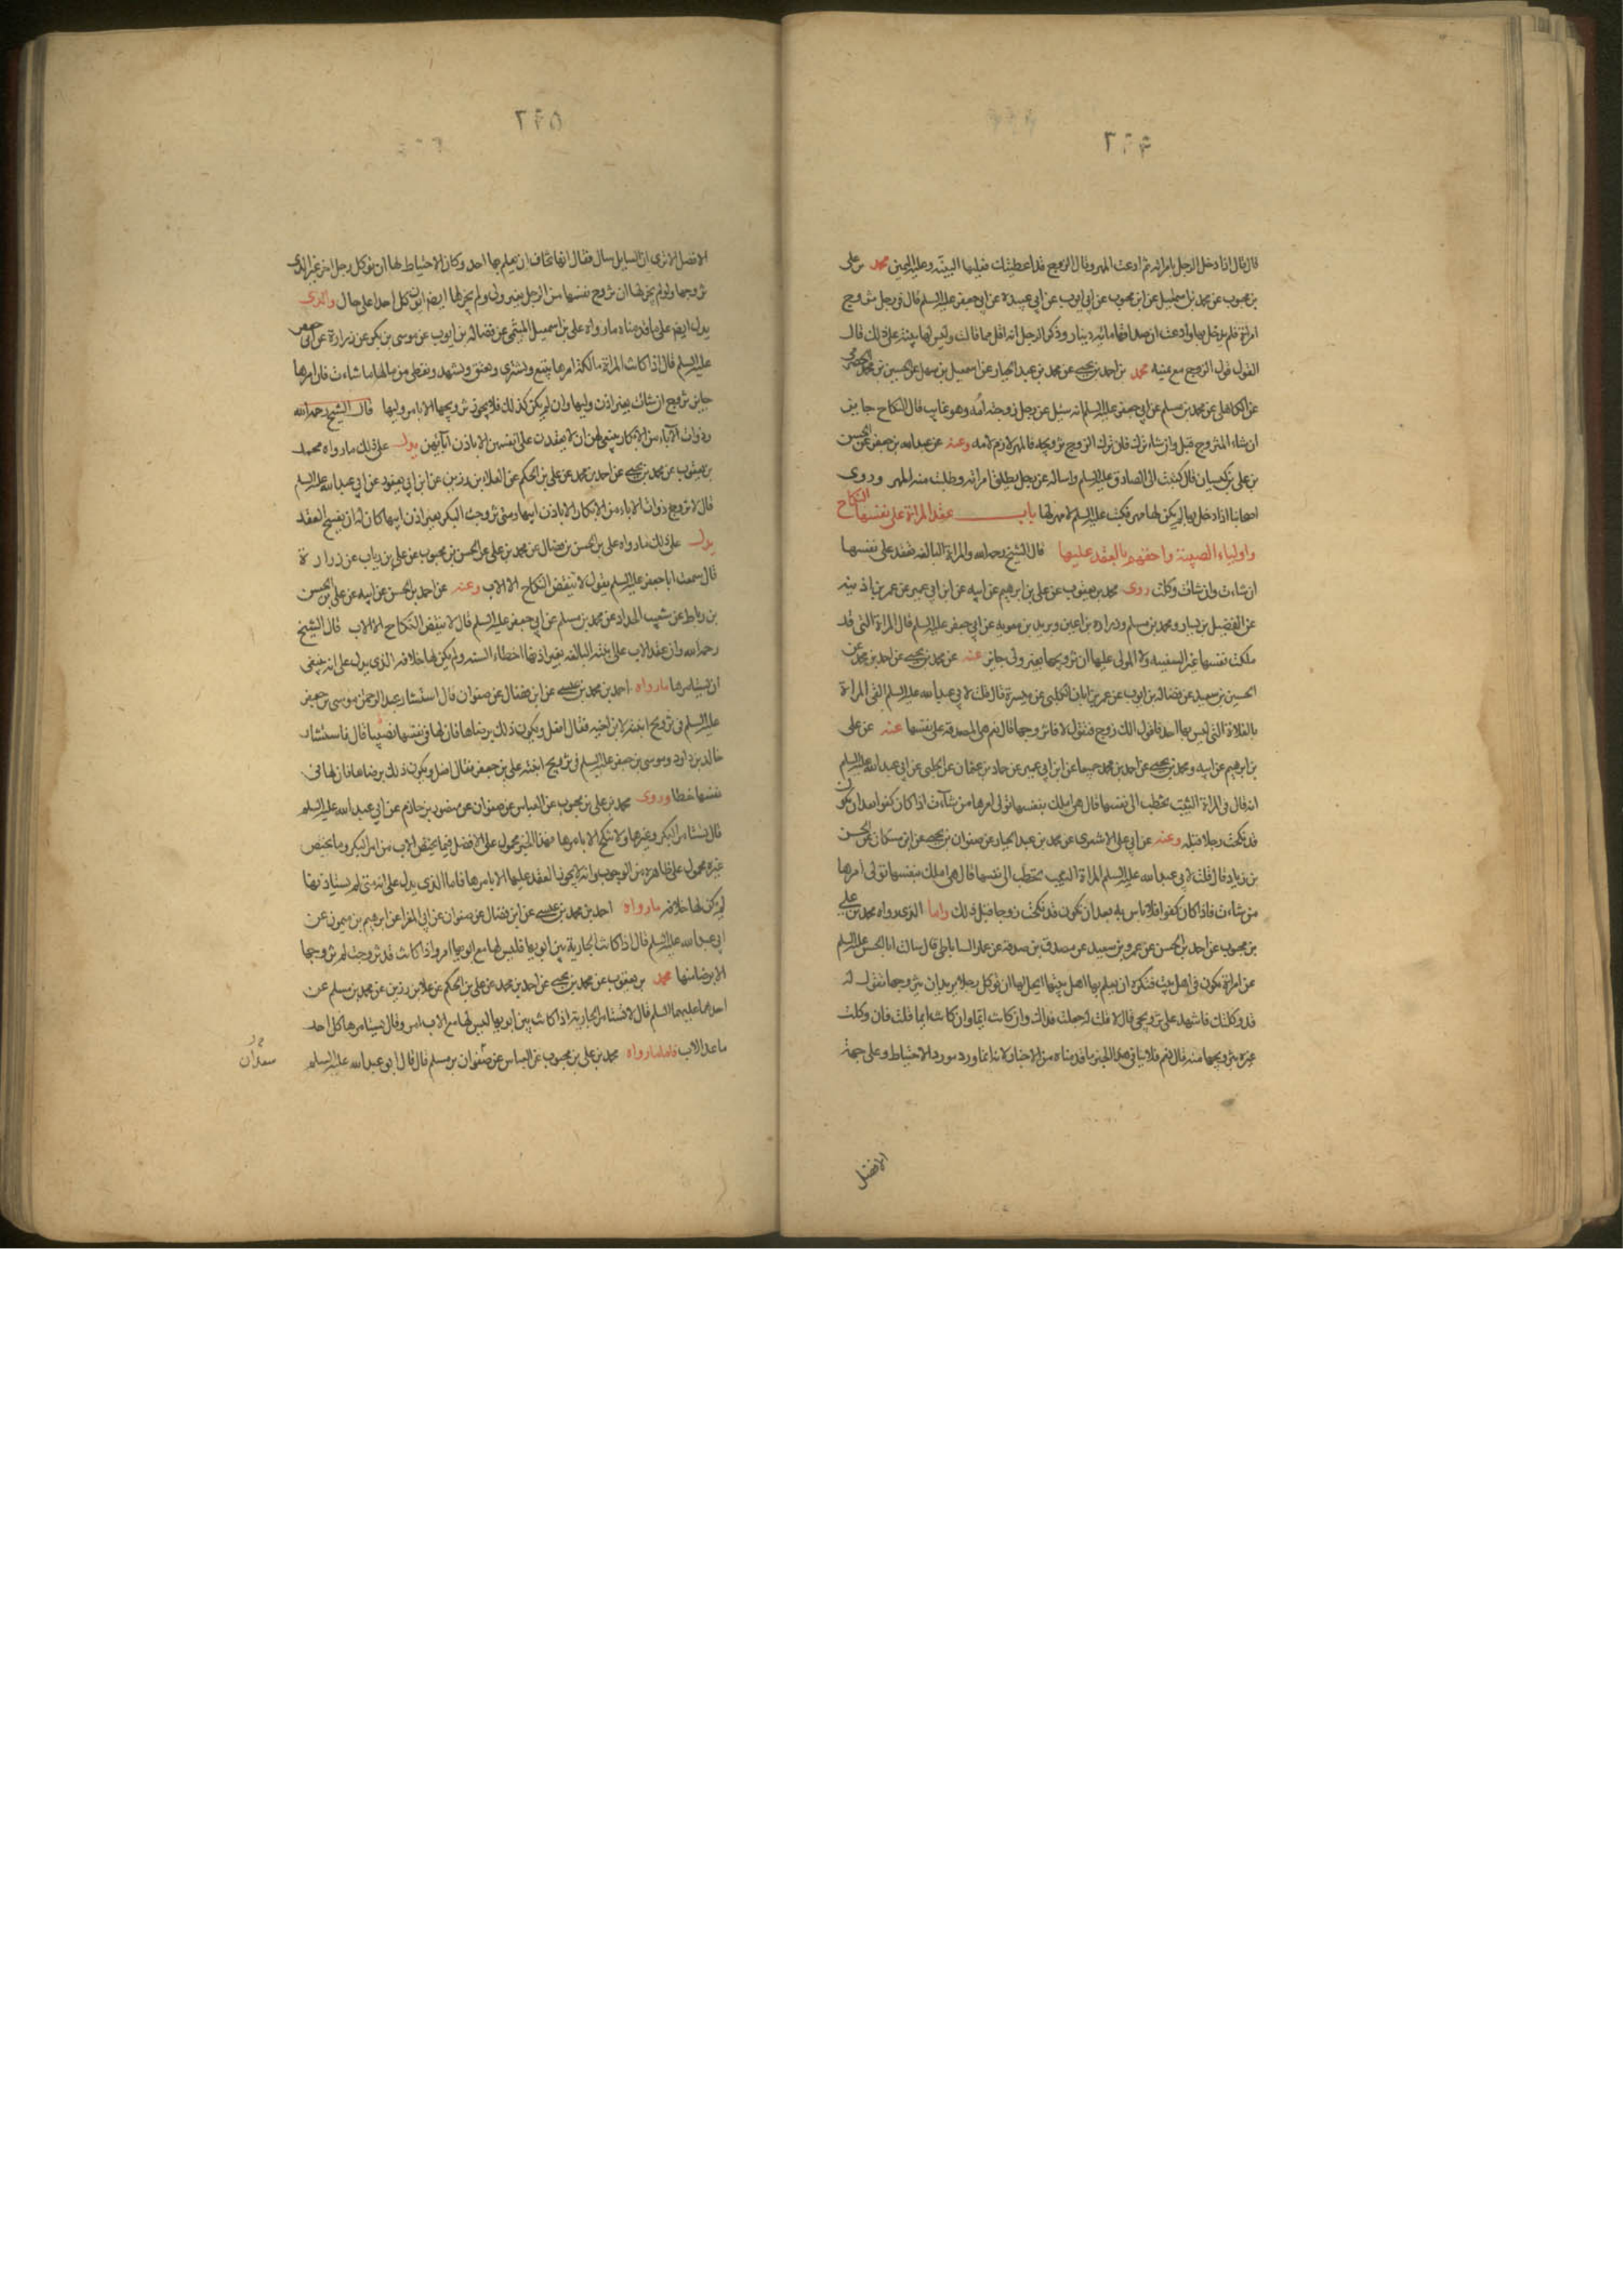 قال قال اذا دخل الرجل بامراته ثم ادعت المهر وقال الزوج قد اعطيتك فعليها البينة وعليه اليمين محمد بن علي
بن محبوب عن محمد بن اسمعيل عن ابن محبوب عن ابي ايوب عن ابي عبيدة عن ابي جعفر عليه السلم قال في رجل تزوج
امراة فلم يدخل بها وادعت ان صداقها مائة دينار وذكر الرجل انه اقل مما قالت وليس لها بينة على ذلك قال
القول قول الزوج مع يمينه محمد بن احمد بن يحيى عن محمد بن عبد الجبار عن اسمعيل بن سهل عن الحسين بن محمد الحضرمي
عن الكاهلي عن محمد بن مسلم عن ابي جعفر عليه السلم انه سئل عن رجل زوجته امه وهو غايب قال النكاح جايز
ان شاء المتزوج قبل وان شاء ترك فان ترك الزوج تزويجه فالمهر لازم لامه وعنه عن عبد الله بن جعفر عن الحسن
بن علي بن كيسان قال كتبت الى الصادق عليه السلم واساله عن رجل يطلق امراته وطلبت منه المهر وروى
اصحابنا اذا دخل بها لم يكن لها مهر فكتب عليه السلم لا مهر لها باب عقد المراة على نفسها النكاح
واولياء الصبية واحقهم بالعقد عليها قال الشيخ رحمه الله والمراة البالغة تعقد على نفسها
ان شاءت وان شاءت وكلت روى محمد بن يعقوب عن علي بن ابرهيم عن ابيه عن ابن ابي عمير عن عمر بن اذينه
عن الفضيل بن يسار ومحمد بن مسلم وزراره بن اعين وبريد بن معويه عن ابي جعفر عليه السلم قال المراة التي قد
ملكت نفسها غير السفيهه ولا المولى عليها ان تزويجها بغير ولي جايز عنه عن محمد بن يحيى عن احمد بن محمد عن
الحسين بن سعيد عن فضاله بن ايوب عن عمر بن ابان الكلبي عن ميسرة قال قلت لابي عبد الله عليه السلم القى المراة
بالفلاة التي ليس بها احد فاقول الك زوج فتقول لا فاتزوجها قال نعم هي المصدقة على نفسها عنه عن علي
بن ابرهيم عن ابيه ومحمد بن يحيى عن احمد بن محمد جميعا عن ابن ابي عمير عن حماد بن عثمان عن الحلبي عن ابي عبد الله عليه السلم
انه قال في المراة الثيب تخطب الى نفسها قال هي املك بنفسها تولى امرها من شاءت اذا كان كفوا بعد ان تكون
قد نكحت رجلا قبله وعنه عن ابي علي الاشعري عن محمد بن عبد الجبار عن صفوان بن يحيى عن ابن مسكان عن الحسن
بن زياد قال قلت لابي عبد الله عليه السلم المراة الثيب تخطب الى نفسها قال هي املك بنفسها تولى امرها
من شاءت فاذا كان كفوا فلا باس به بعد ان تكون قد نكحت زوجا قبل ذلك واما الذي رواه محمد بن علي
بن محبوب عن احمد بن الحسن عن عمرو بن سعيد عن مصدق بن صدقه عن عمار الساباطي قال سالت ابا الحسن عليه السلم
عن امراة تكون في اهل بيت فتكره ان يعلم بها اهل بيتها ايحل لها ان توكل رجلا يريد ان يتزوجها تقول له
قد وكلتك فاشهد على تزويجي قال لا قلت له جعلت فداك وان كانت ايما وان كانت ايما قلت فان وكلت
غيره بتزويجها منه قال نعم فلا ينافي هذا الخبر ما قدمناه من الاخبار لانه انما ورد مورد الاحتياط وعلى جهة
الافضل
الافضل الا ترى ان السايل سال فقال انها تخاف ان يعلم بها احد وكان الاحتياط لها ان توكل رجل اخر غير الذي
تزوجها ولو لم يجز لها ان تزوج نفسها من الرجل بغير ولي ولم يجز لها ايضا ان توكل احدا على حال والذي
يدل ايضا على ما قدمناه ما رواه علي بن اسمعيل الميثمي عن فضاله بن ايوب عن موسى بن بكر عن زرارة عن ابي جعفر
عليه السلم قال اذا كانت المراة مالكة امرها تبيع وتشترى وتعتق وتشهد وتعطى من مالها ما شاءت فان امرها
جايز تزوج ان شاءت بغير اذن وليها وان لم يكن كذلك فلا يجوز تزويجها الا بامر وليها قال الشيخ رحمه الله
وذوات الآباء من الابكار ينبغي لهن ان لا يعقدن على انفسهن الا باذن آبائهن يدل على ذلك ما رواه محمد
بن يعقوب عن محمد بن يحيى عن احمد بن محمد عن علي بن الحكم عن العلاء بن رزين عن ابن ابي يعفور عن ابي عبد الله عليه السلم
قال لا تزوج ذوات الاباء من الابكار الا باذن ابيها ومتى تزوجت البكر بغير اذن ابيها كان له ان يفسخ العقد
يدل على ذلك ما رواه علي بن الحسن بن فضال عن محمد بن علي عن الحسن بن محبوب عن علي بن رياب عن زرارة
قال سمعت ابا جعفر عليه السلم يقول لا ينقض النكاح الا الاب وعنه عن احمد بن الحسن عن ابيه عن علي بن الحسن
بن رباط عن شعيب الحداد عن محمد بن مسلم عن ابي جعفر عليه السلم قال لا ينقض النكاح الا الاب قال الشيخ
رحمه الله وان عقد الاب على ابنته البالغه بغير اذنها اخطاء السنه ولم يكن لها خلافه الذي يدل على انه ينبغي
ان يستامرها ما رواه احمد بن محمد بن عيسى عن ابن فضال عن صفوان قال استشار عبد الرحمن موسى بن جعفر
عليه السلم في تزويج ابنته لابن اخيه فقال افعل ويكون ذلك برضاها فان لها في نفسها نصيبا قال فاستشار
خالد بن داود موسى بن جعفر عليه السلم في تزويج ابنته علي بن جعفر فقال افعل ويكون ذلك برضاها فان لها في
نفسها حظا وروى محمد بن علي بن محبوب عن العباس عن صفوان عن منصور بن حازم عن ابي عبد الله عليه السلم
قال تستامر البكر وغيرها ولا تنكح الا بامرها فهذا الخبر محمول على الافضل فيما يختص الاب من امر البكر وما يختص
غيره محمول على ظاهره من الوجوب وانه لا يجوز العقد عليها الا بامرها فاما الذي يدل على انه متى لم يستاذنها
لم يكن لها خلافه ما رواه احمد بن محمد بن عيسى عن ابن فضال عن صفوان عن ابي المغرا عن ابرهيم بن ميمون عن
ابي عبد الله عليه السلم قال اذا كانت الجارية بين ابويها فليس لها مع ابويها امر واذا كانت قد تزوجت لم تزوجها
الا برضا منها محمد بن يعقوب عن محمد بن يحيى عن احمد بن محمد عن علي بن الحكم عن علا بن رزين عن محمد بن مسلم عن
احدهما عليهما السلم قال لا تستامر الجارية اذا كانت بين ابويها ليس لها مع الاب امر وقال يستامرها كل احد
ما عدا الاب فاما ما رواه محمد بن علي بن محبوب عن العباس عن صفوان بن مسلم قال قال ابو عبد الله عليه السلم
سعدان